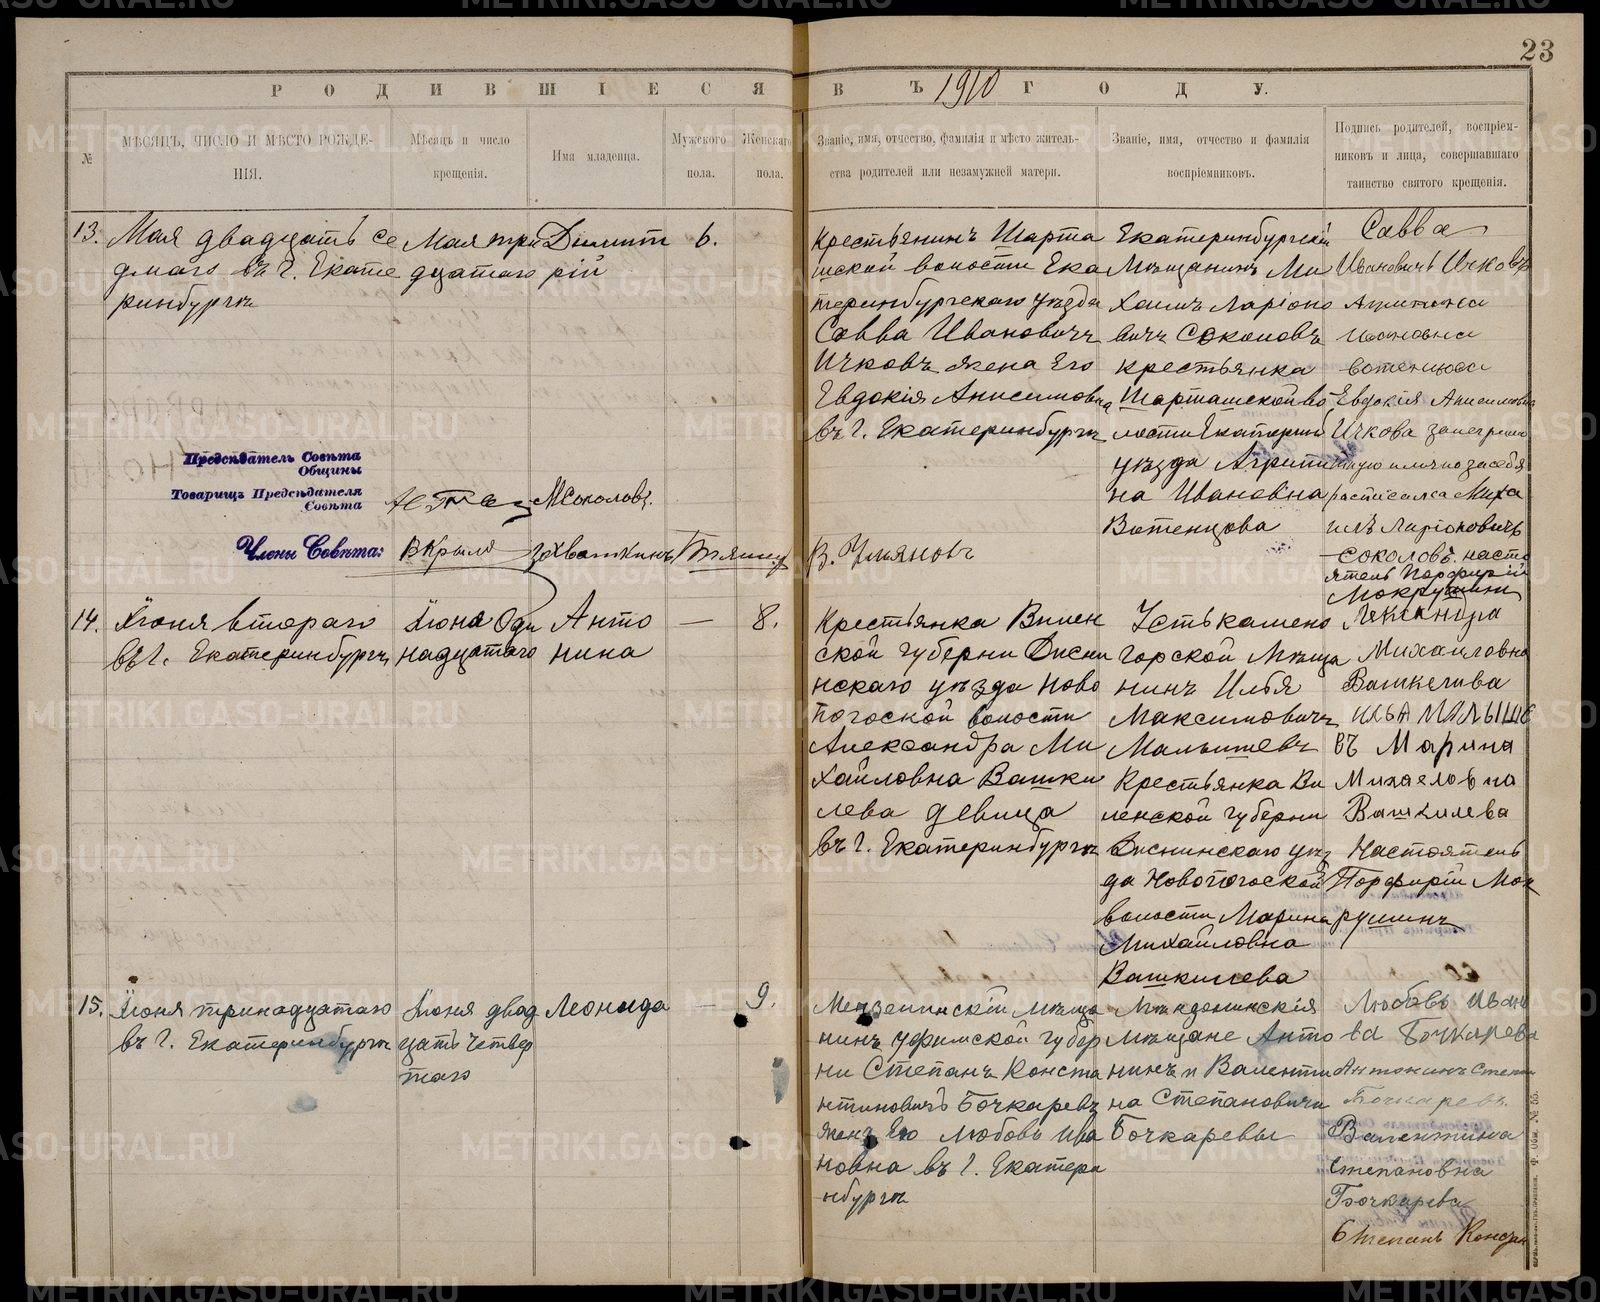 23
РОДИВШІЕСЯ ВЪ 1910 ГОДУ.
№
МѢСЯЦЪ, ЧИСЛО И МѢСТО РОЖДЕ-
НІЯ.
Мѣсяцъ и число
крещенія.
Имя младенца.
Мужского
пола.
Женскаго
пола.
Званіе, имя, отчество, фамилія и мѣсто житель-
ства родителей или незамужней матери.
Званіе, имя, отчество и фамилія
воспріемниковъ.
Подпись родителей, воспріем-
никовъ и лица, совершавшаго
таинство святого крещенія.
13.
Мая двадцать се
дмаго въ г. Екате
ринбургѣ
Мая три
дцатаго
Димит
рій
6.
Крестьянинъ Шарта
шской волости Ека
теринбургскаго уѣзда
Савва Ивановичъ
Ичковъ жена Его
Евдокія Анисимовна
въ г. Екатеринбургѣ
Екатеринбургскій
Мѣщанинъ Ми
хаилъ Ларіоно
вичъ Соколовъ
крестьянка
Шарташской во
лости Екатерин
уѣзда Агрипи
на Ивановна
Вотенцова
Савва
Ивановичъ Ичковъ
Ивановна
Евдокія Анисимовна
Ичкова за негра
тную и лично за себя
расписался Миха
илъ Ларіоновичъ
Соколовъ. насто
ятель Порфирій
Мокрушинъ
Предсѣдатель Совѣта
Общины
Товарищъ Предсѣдателя
Совѣта
М Соколовъ.
Члены Совѣта:
В. Ульяновъ
14.
Іюня втораго
въ г. Екатеринбургѣ
Іюня Оди
надцатаго
Анто
нина
—
8.
Крестьянка Вилен
ской губерни Дисни
нскаго уѣзда Ново
погоской волости
Александра Ми
хайловна Вашки
лева девица
въ г. Екатеринбургѣ
Устькамено
горской Мѣща
нинъ Илья
Максимовичъ
Малышевъ
Крестьянка Ви
ленской губерни
Диснинскаго уѣз
да Новопогоской
волости Марина
Михайловна
Вашкилева
Александра
Михаиловна
Вашкелива
ИЛЬА МАЛЫШЕ
въ Марина
Михаеловна
Вашкилева
Настоятель
Порфирій Мок
рушинъ
15.
Іюня тринадцатаго
въ г. Екатеринбургѣ
Іюня двад
цать четвер
таго
Леонида
—
9.
Мензелинскій мѣща
нинъ Уфимской губер
ни Степанъ Конста
нтиновичъ Бочкаревъ
жена Его Любовь Ива
новна въ г. Екатери
нбургѣ
мѣщане Анто
нинъ и Валенти
на Степановичи
Бочкаревы
Любовь Ивано
ва Бочкарева
Антонинъ Степан
Бочкаревъ.
Валентина
Степановна
Бочкарева
Степанъ Констан
METRIKI.GASO-URAL.RU